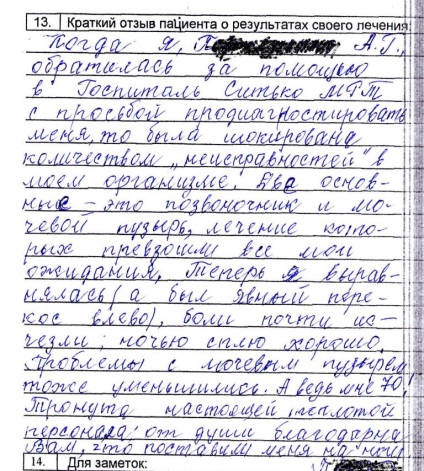 13. Краткий отзыв пациента о результатах своего лечения:
Когда я, П А.Г.,
обратилась за помощью
в Госпиталь Ситько МРТ
с просьбой продиагностировать
меня, то была шокирована
количеством „неисправностей" в
моем организме. Две основ-
ные – это позвоночник и мо-
чевой пузырь, лечение кото-
рых превзошли все мои
ожидания. Теперь я вырав-
нялась (а был явный пере-
кос влево), боли почти ис-
чезли; ночью сплю хорошо.
Проблемы с мочевым пузырем
тоже уменьшились. А ведь мне 70!
Тронута настоящей теплотой
персонала: от души благодарна
Вам, что поставили меня на ноги
14. Для заметок: